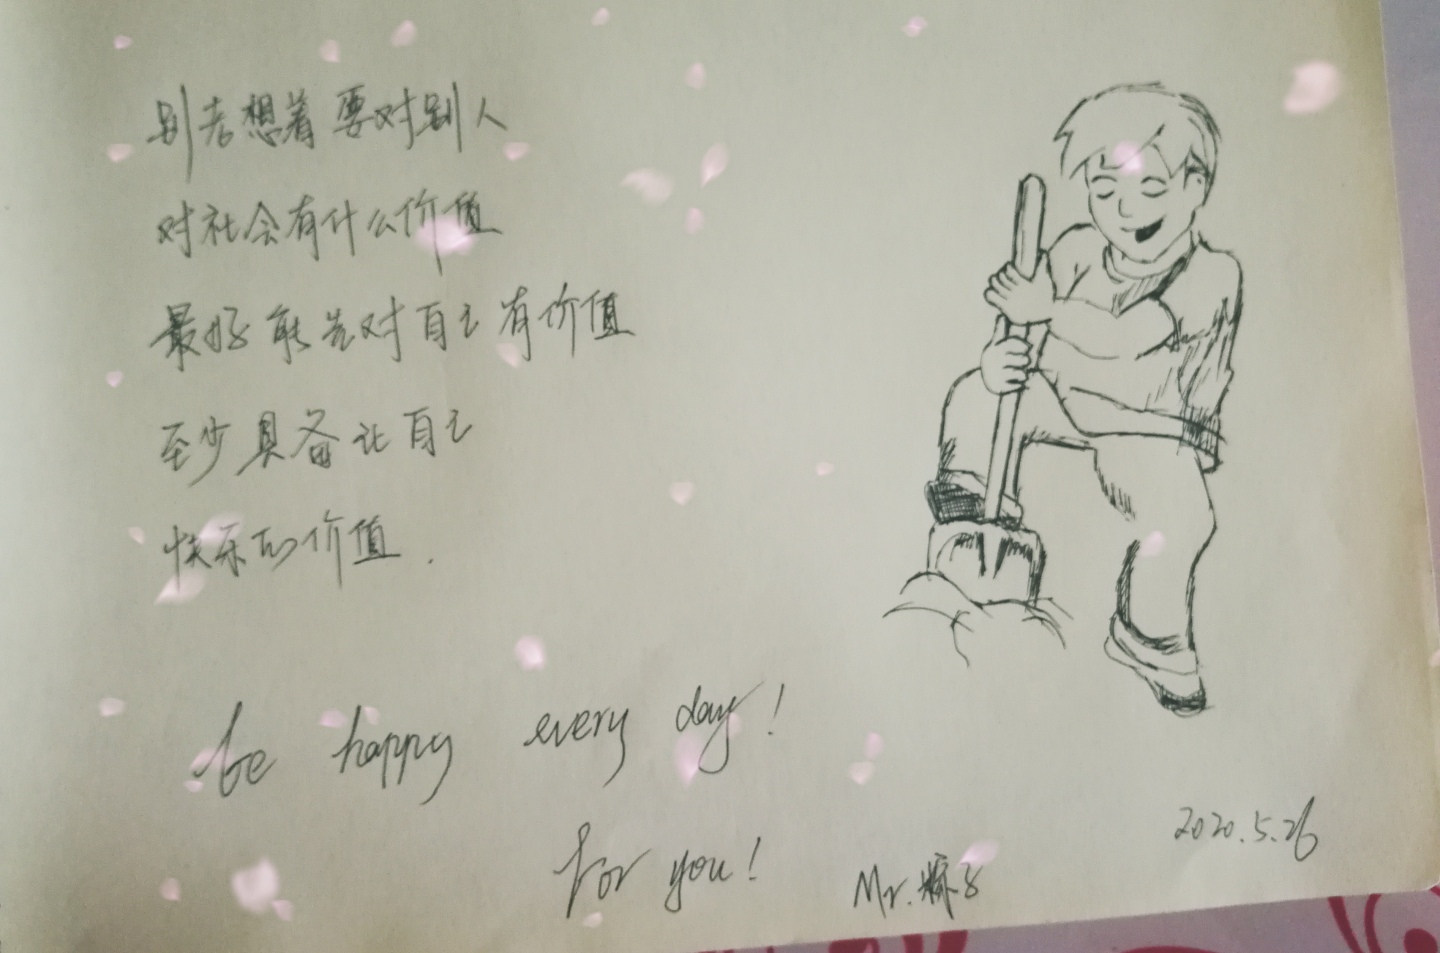 别老想着要对别人
对社会有什么价值
最好能先对自己有价值
至少具备让自己
快乐的价值.
be happy every day!
for you!
Mr.
2020.5.26